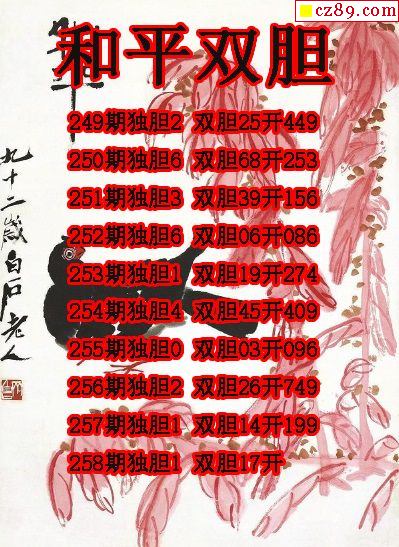 cz89.com
和平双胆
249期独胆2 双胆25开449
250期独胆6 双胆68开253
251期独胆3 双胆39开156
252期独胆6 双胆06开086
253期独胆1 双胆19开274
254期独胆4 双胆45开409
255期独胆0 双胆03开096
256期独胆2 双胆26开749
257期独胆1 双胆14开199
258期独胆1 双胆17开
九十二岁白石老人